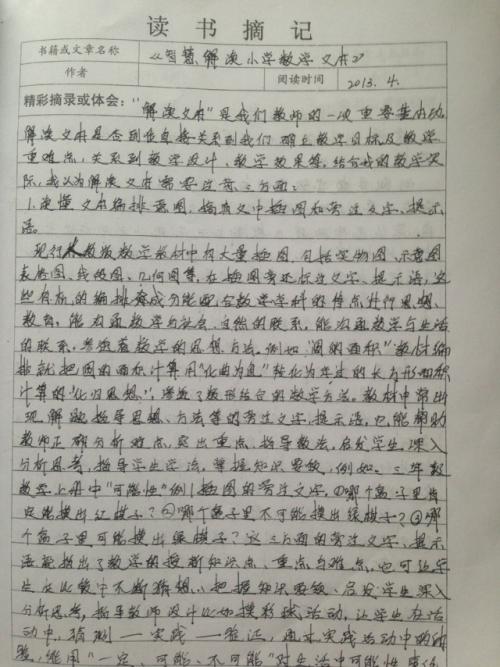 读书摘记
书籍或文章名称 《智慧解读小学数学文本》
作者 阅读时间 2013.4.
精彩摘录或体会："解读文本"是我们教师的一项重要基本功，
解读文本是否到位直接关系到我们确立教学目标及教学
重难点，关系到教学设计、教学效果等。结合我的教学实
际，我认为解读文本需要注意三方面：
1.读懂文本编排意图，搞清文中插图和旁注文字、提示
语。
现行人教版数学教材中有大量插图，包括实物图、示意图
表格图、线段图、几何图等，在插图旁还标注文字、提示语，这
些有机的编排充分能配合数学学科的特点进行思想、
教育，能沟通数学与社会、自然的联系，能沟通数学与生活
的联系，渗透着数学的思想方法。例如"圆的面积"教材编
排就把圆的面积计算用"化曲为直"转化为学过的长方形面积
计算的"化归思想"，渗透了数形结合的数学方法。教材中常出
现解题指导思想、方法等的旁注文字、提示语，也能帮助
教师正确分析难点，突出重点，指导教法，启发学生深入
分析思考，指导学生学法，掌握知识要领，例如：三年级
数学上册中"可能性"例1插图的旁注文字，①哪个盒子里肯
定能摸出红棋子？②哪个盒子里不可能摸出绿棋子？③哪
个盒子里可能摸出绿棋子？这三方面的旁注文字、提示
语就指出了教学的搜新知识点、重点与难点，也可让学
生在比较中不断猜想，把握知识要领，启发学生深入
分析思考，指导教师设计比如摸彩球活动，让学生在活
动中，猜测——实践——验证，由来实践活动中的体
验，能用"一定、可能、不可能"对生活中可能性